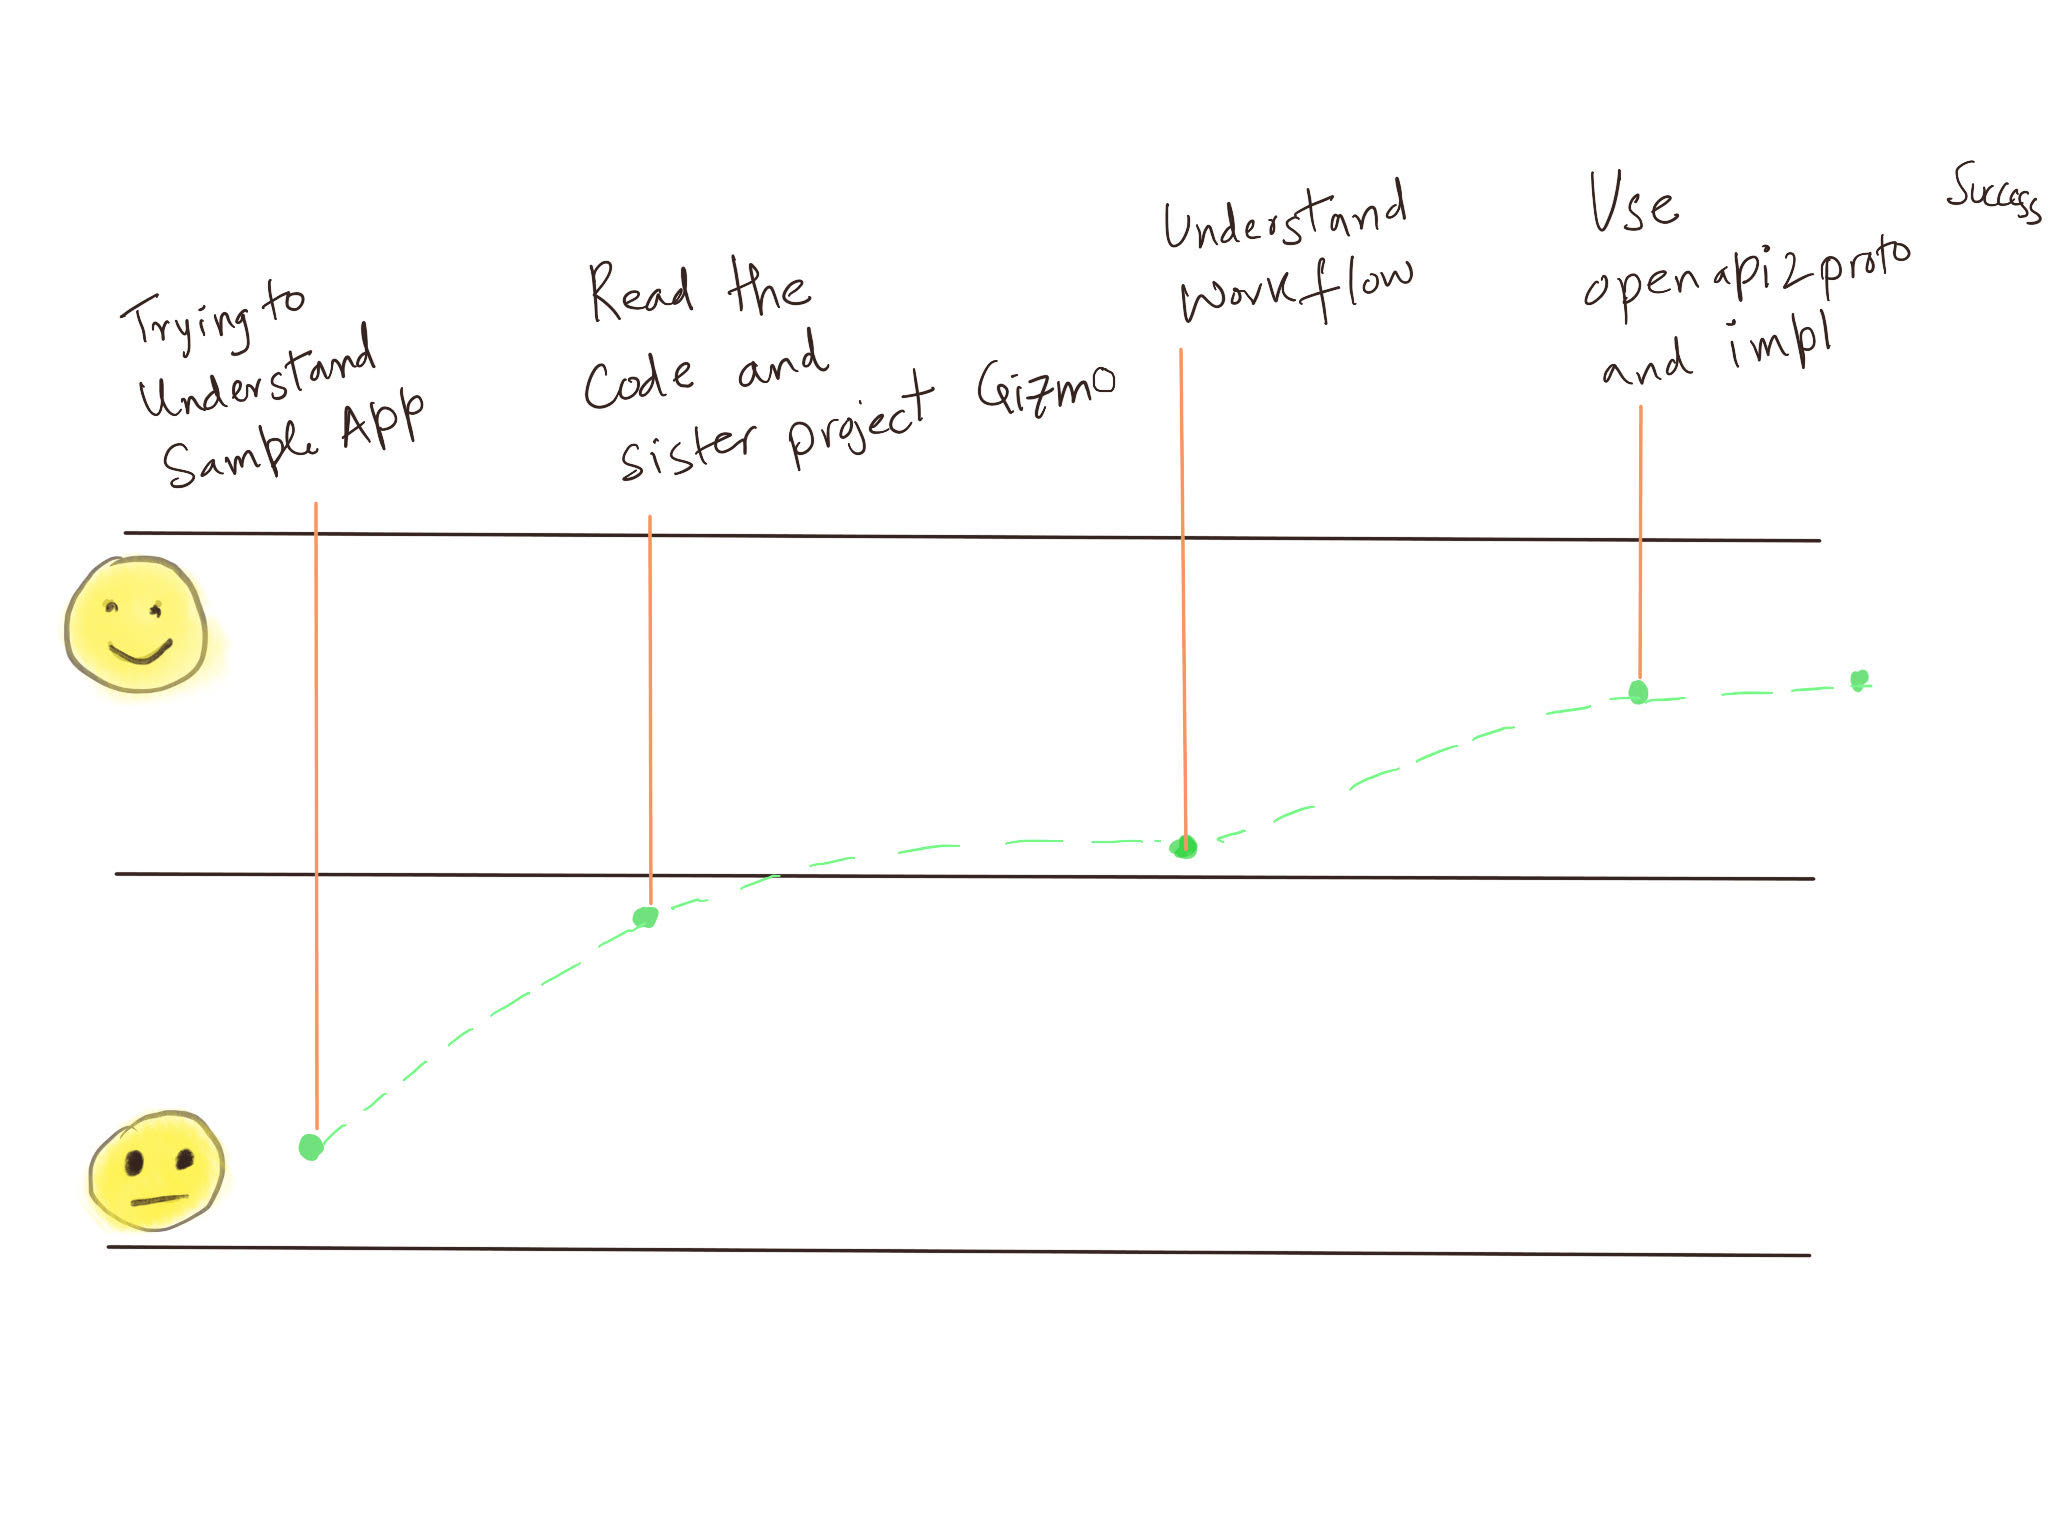 Trying to
Understand
Sample App
Read the
Code and
sister project Gizmo
Understand
workflow
Use
openapi2proto
and impl
Success